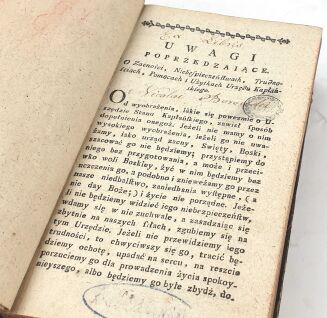 Ex Libris
UWAGI
POPRZEDZAIĄCE.
O Zacności, Niebeśpieczeństwach, Trudno-
ściach, Pomocach i Użytkach Urzędu Kapłań-
skiego.
Od wyobrażenia, iakie są powzięte o U-
rzędzie Stanu Kapłańskiego, zawisł sposób
dopełnienia onegoż. Jeżeli nie mamy o nim
wysokiego wyobrażenia, jeżeli go nie uwa-
żamy, iako urząd zacny, Święty, Boski,
szacować go nie będziemy; przystąpiemy do
niego bez przygotowania, a może i przeci-
wko woli Boskiey, żyć w nim będziemy bez
szacunku go, a podobno i znieważemy go przez
nasze niedbalstwo, zaniedbania wyłępne, (a
nie day Boże;) i życie nie porządne. Jeże-
li nie będziemy widzieć iego niebeśpieczeństw,
wdamy się w nie zuchwale, a zasadzaiąc się
zbytnie na naszych siłach, zgubiemy się na
tym Urzędzie. Jeżeli nie przewidziemy iego
trudności, to chwyciwszy się go, tracić bę-
dziemy ochotę, upadać na sercu, na reszcie
porzuciemy go dla prowadzenia życia spokoy-
nieyszego, albo będziemy go byle zbydź, do-